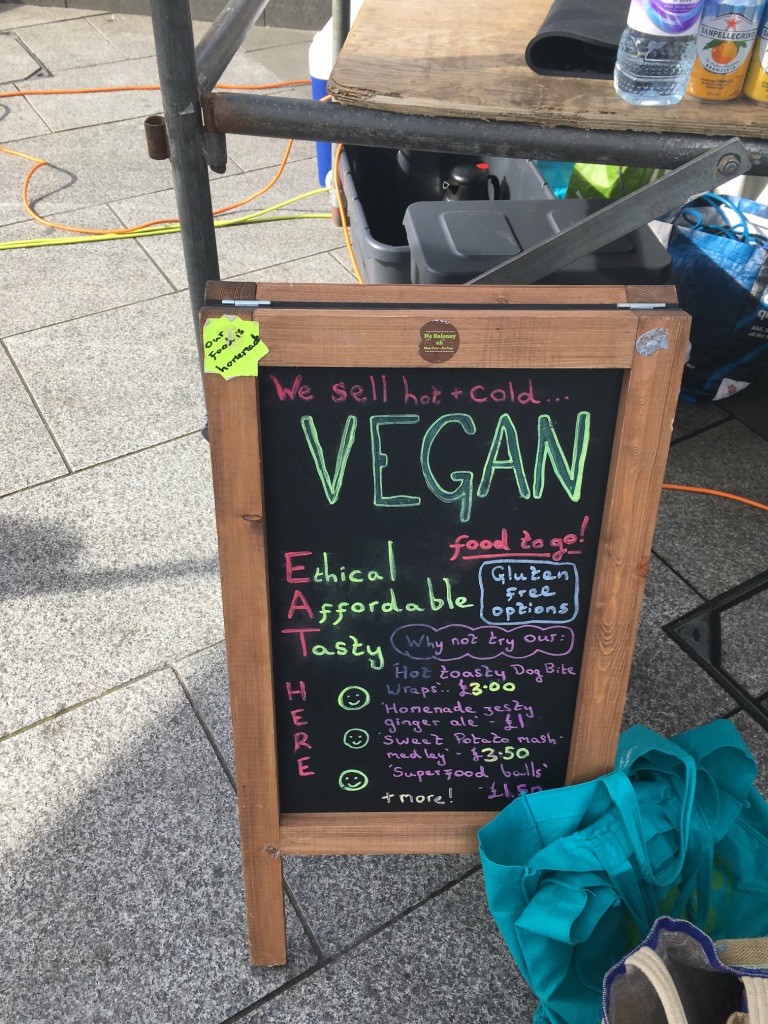 SANPELLEGRINO
our
food is
homemade
No Baloney
We sell hot + cold...
VEGAN
food to go!
Ethical
Affordable
Tasty
Gluten
free
options
Why not try our:
HERE
'Hot toasty Dog Bite
Wraps'.. £3.00
'Homemade zesty
ginger ale' - £1
'Sweet Potato mash
medley - £3.50
'Superfood balls'
- £1.50
+ more!